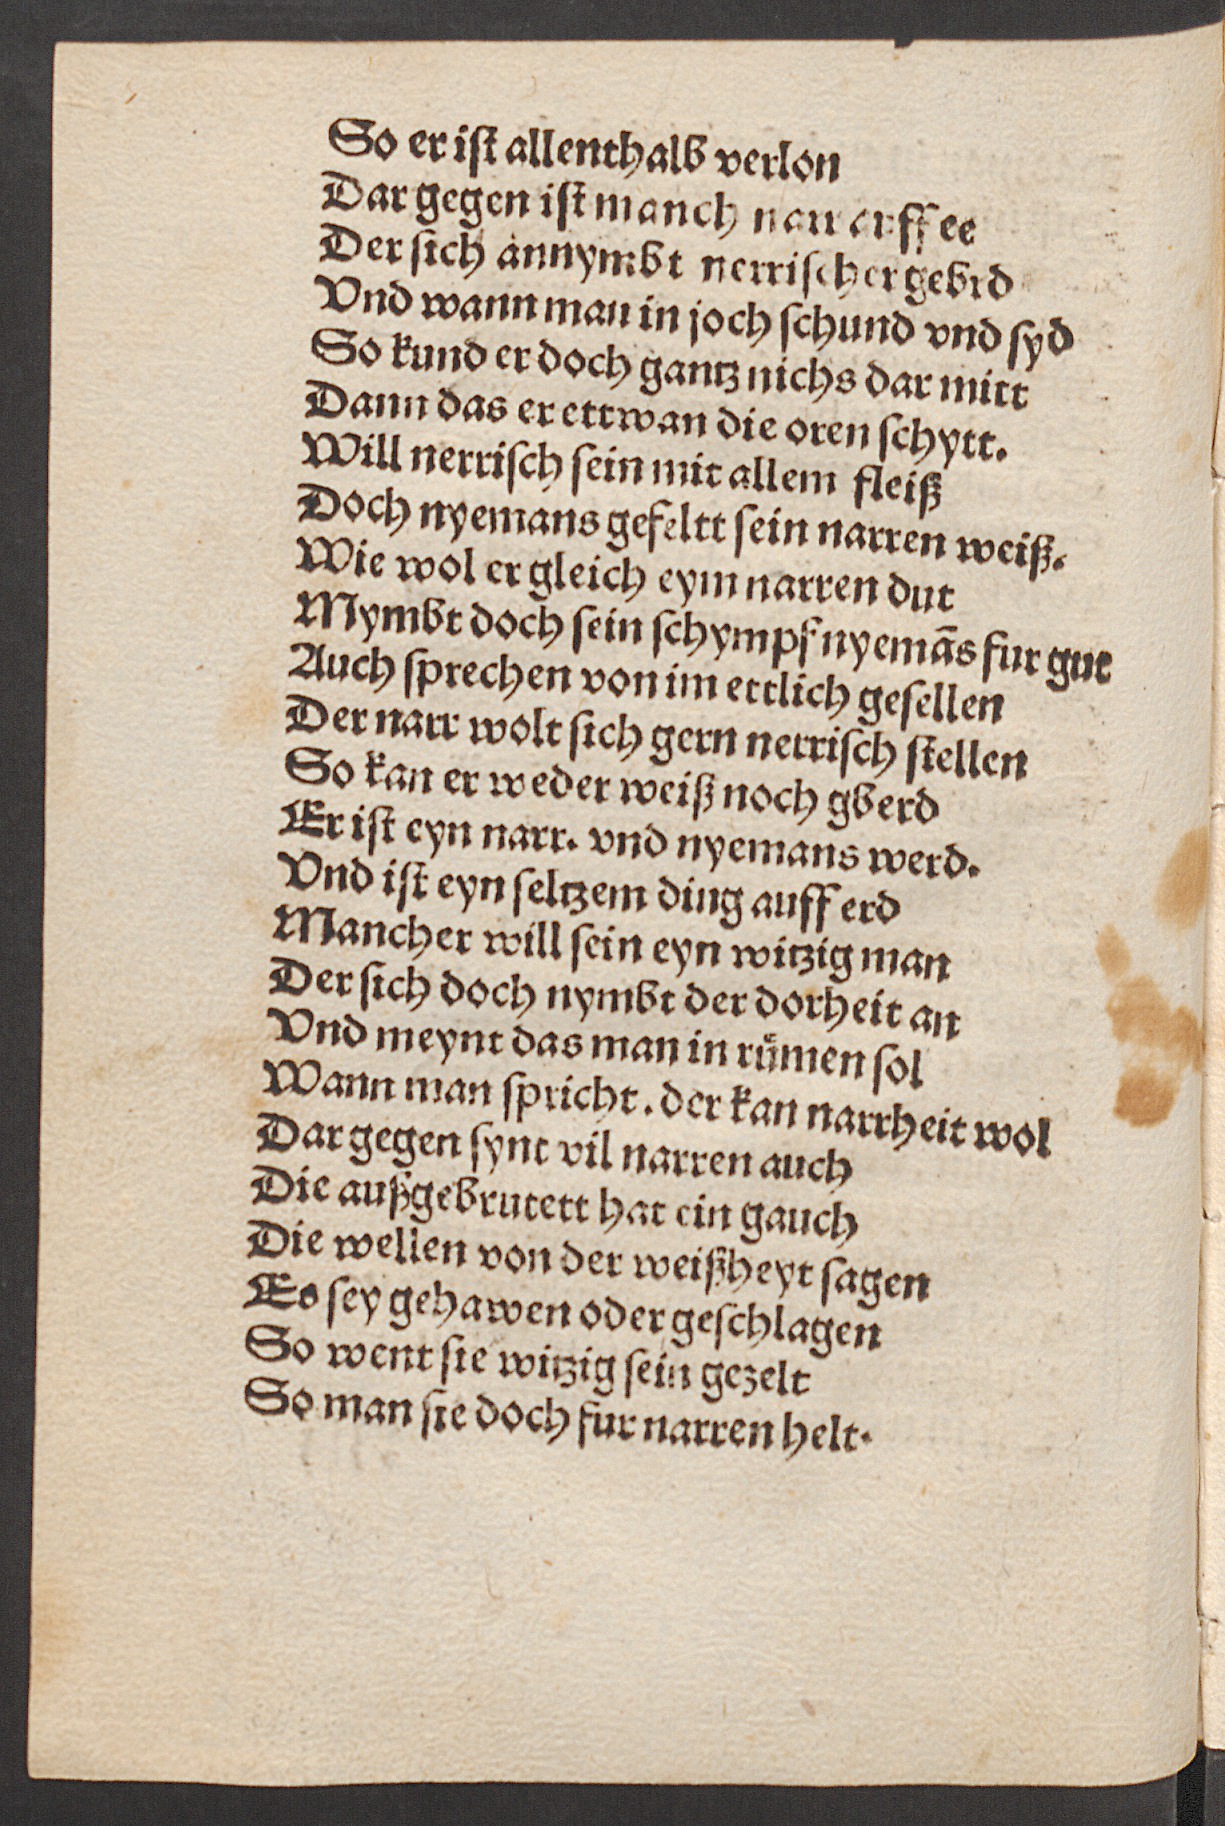 So er ist allenthalb verlon
Dar gegen ist manch narr arff ee
Der sich annymbt nerrischer gebrd
Vnd wann man in joch schund vnd syd
So kund er doch gantz nichs dar mitt
Dann das er ettwan die oren schytt.
Will nerrisch sein mit allem fleiß
Doch nyemans gefeltt sein narren weiß.
Wie wol er gleich eym narren dut
Nymbt doch sein schympf nyemãs fur gut
Auch sprechen von im ettlich gesellen
Der narr wolt sich gern nerrisch stellen
So kan er weder weiß noch gberd
Er ist eyn narr. vnd nyemans werd.
Vnd ist eyn seltzem ding auff erd
Mancher will sein eyn witzig man
Der sich doch nymbt der dorheit an
Vnd meynt das man in rümen sol
Wann man spricht. der kan narrheit wol
Dar gegen synt vil narren auch
Die außgebrutett hat ein gauch
Die wellen von der weißheyt sagen
Es sey gehawen oder geschlagen
So went sie witzig sein gezelt
So man sie doch fur narren helt.